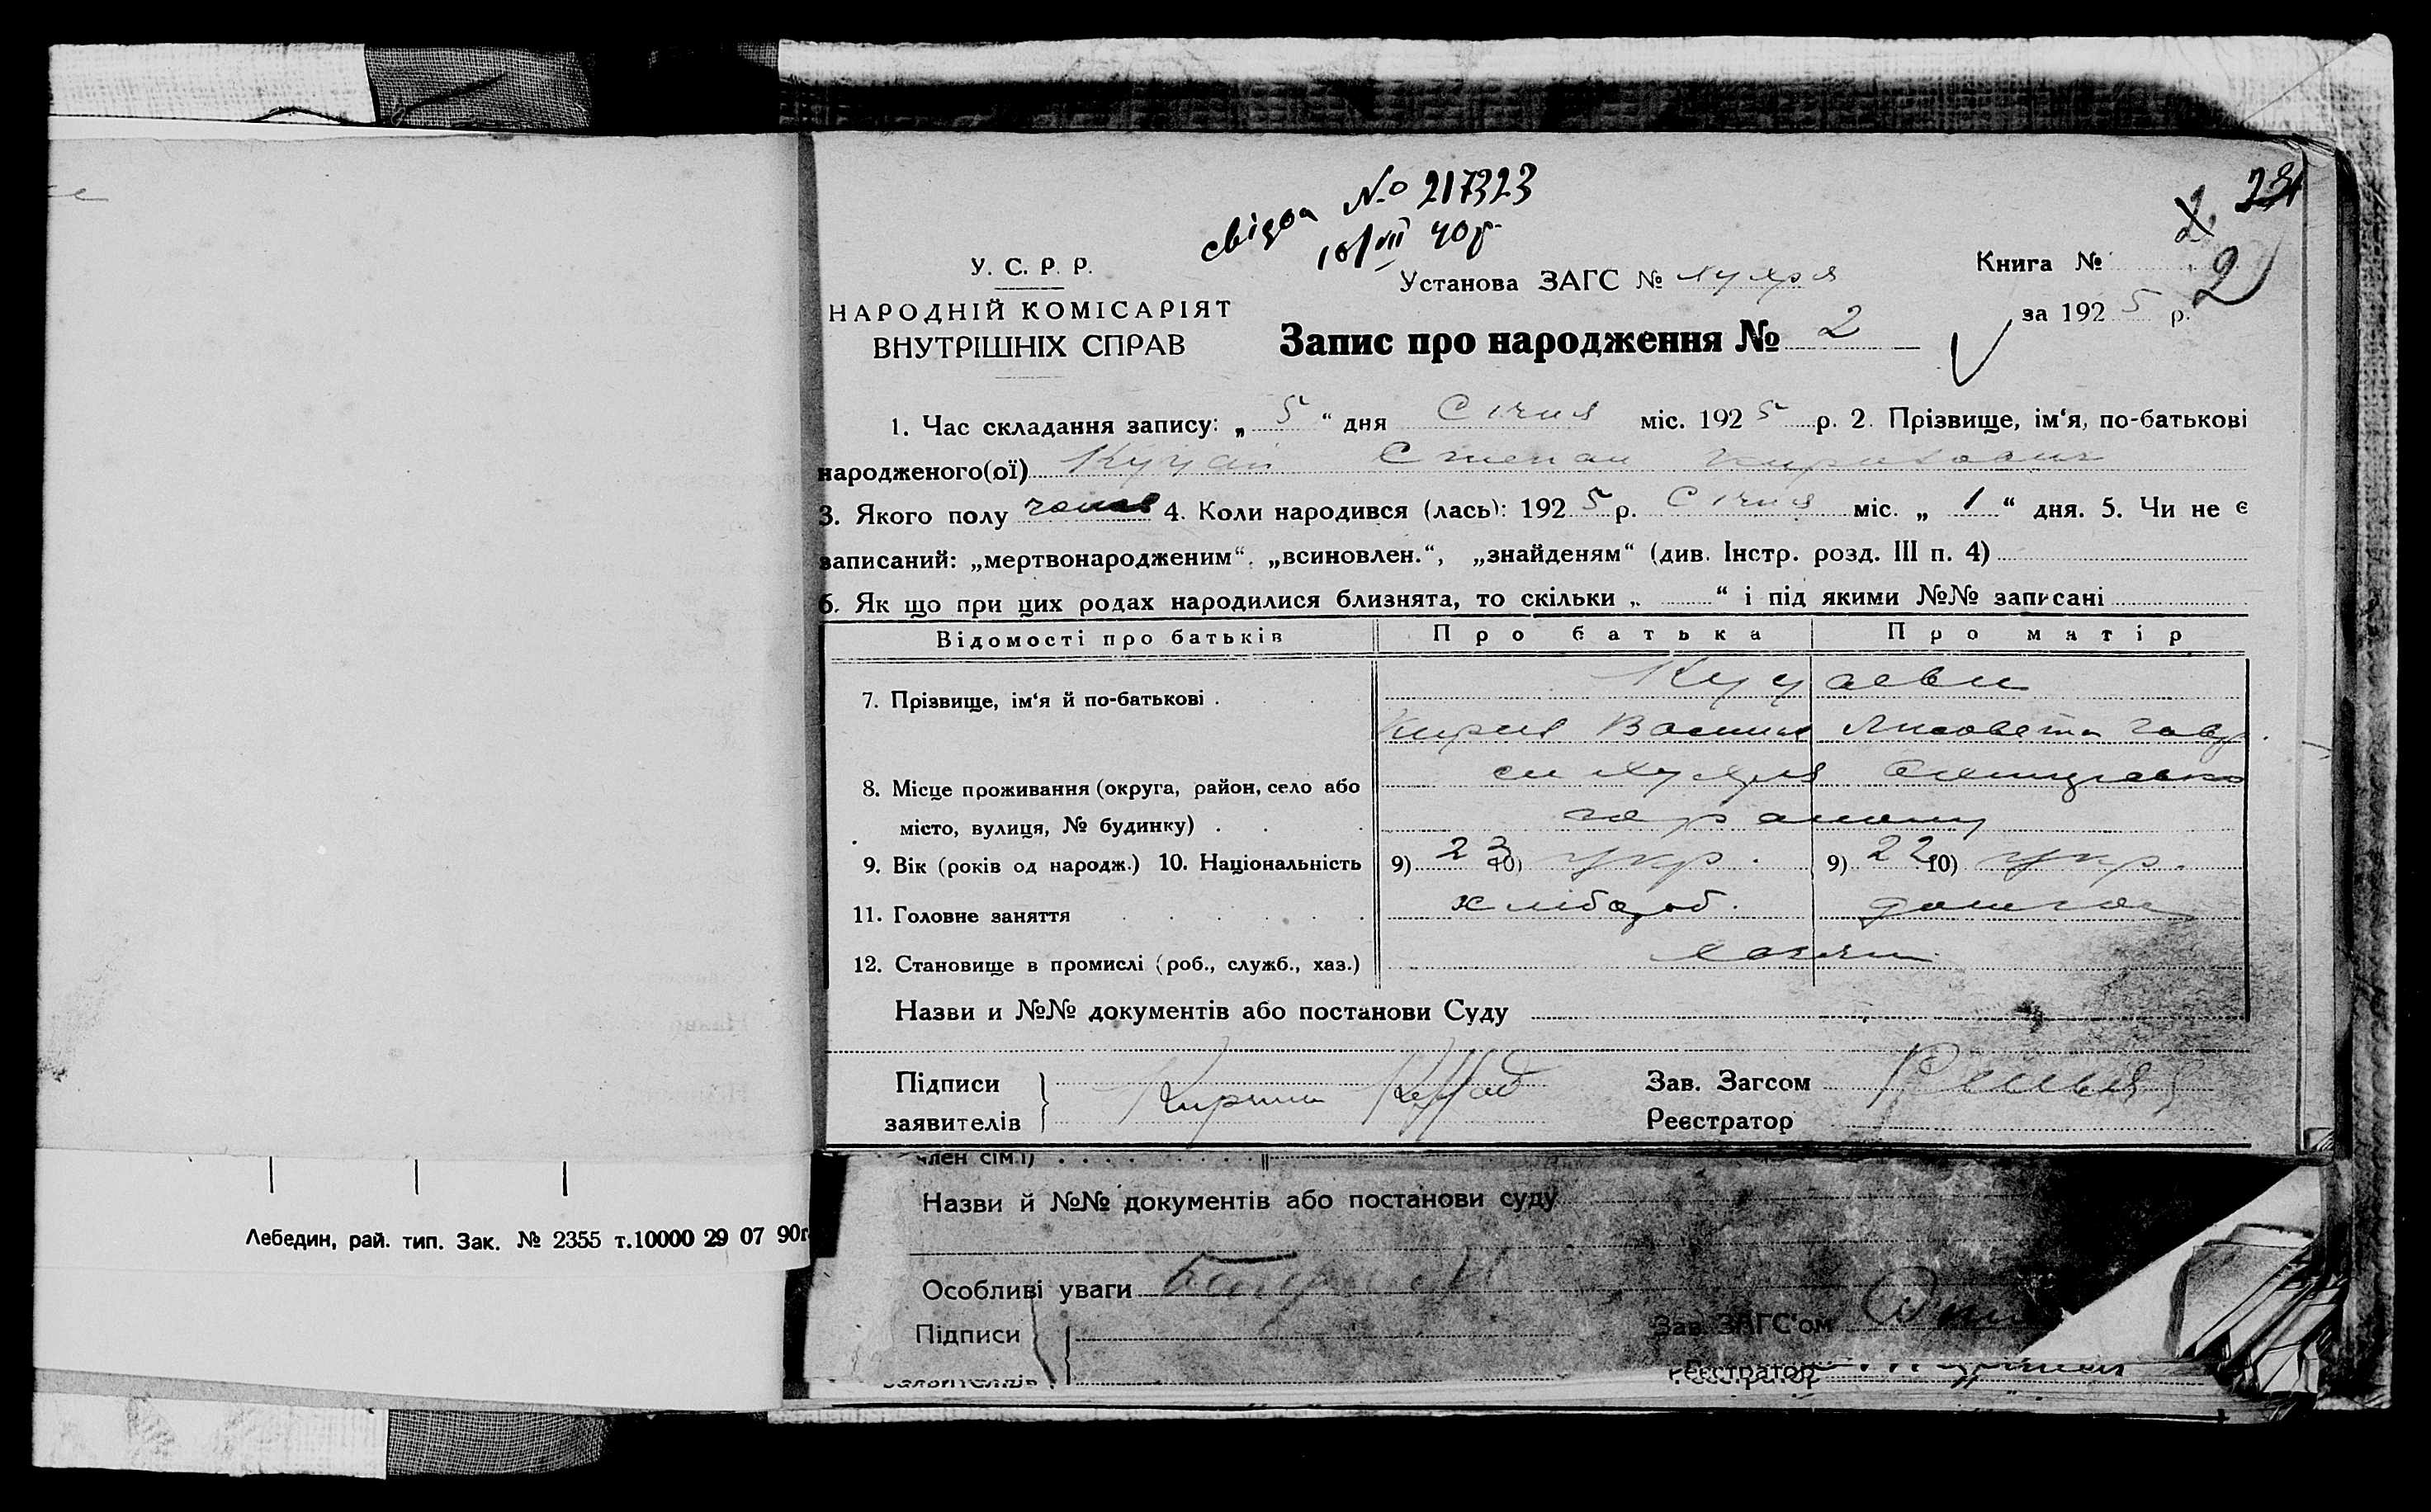 свідоц № 217323
18/VII 40 р
23
2
У. С. Р. Р.
НАРОДНІЙ КОМІСАРІЯТ
ВНУТРІШНІХ СПРАВ
Установа ЗАГС №
Книга №
за 1925 р.
Запис про народження № 2
1. Час складання запису: „ 5 “ дня Січня міс. 1925 р. 2. Прізвище, ім‘я, по-батькові
народженого(ої) Куцай Степан Кирилович
3. Якого полу чолов 4. Коли народився (лась): 1925 р. Січня міс. „ 1 “ дня. 5. Чи не є
записаний: „мертвонародженим“, „всиновлен.“, „знайденям“ (див. Інстр. розд. III п. 4)
6. Як що при цих родах народилися близнята, то скільки „ “ і під якими №№ записані
Відомості про батьків Про батька Про матір
7. Прізвище, ім‘я й по-батькові . Куцаєви
Кирил Васил Лисовета Гавр.
8. Місце проживання (округа, район, село або
місто, вулиця, № будинку) . .
9. Вік (років од народж.) 10. Національність 9) 23 10) укр. 9) 22 10) укр.
11. Головне заняття хлібороб. домогос
12. Становище в промислі (роб., служб., хаз.) хазяї
Назви и №№ документів або постанови Суду
Підписи
заявителів
Кирило
Зав. Загсом
Реєстратор
член сім‘ї)
Назви й №№ документів або постанови суду
Особливі уваги
Підписи
Зав. ЗАГС‘ом
Реєстратор
Лебедин, рай. тип. Зак. № 2355 т.10000 29 07 90г.